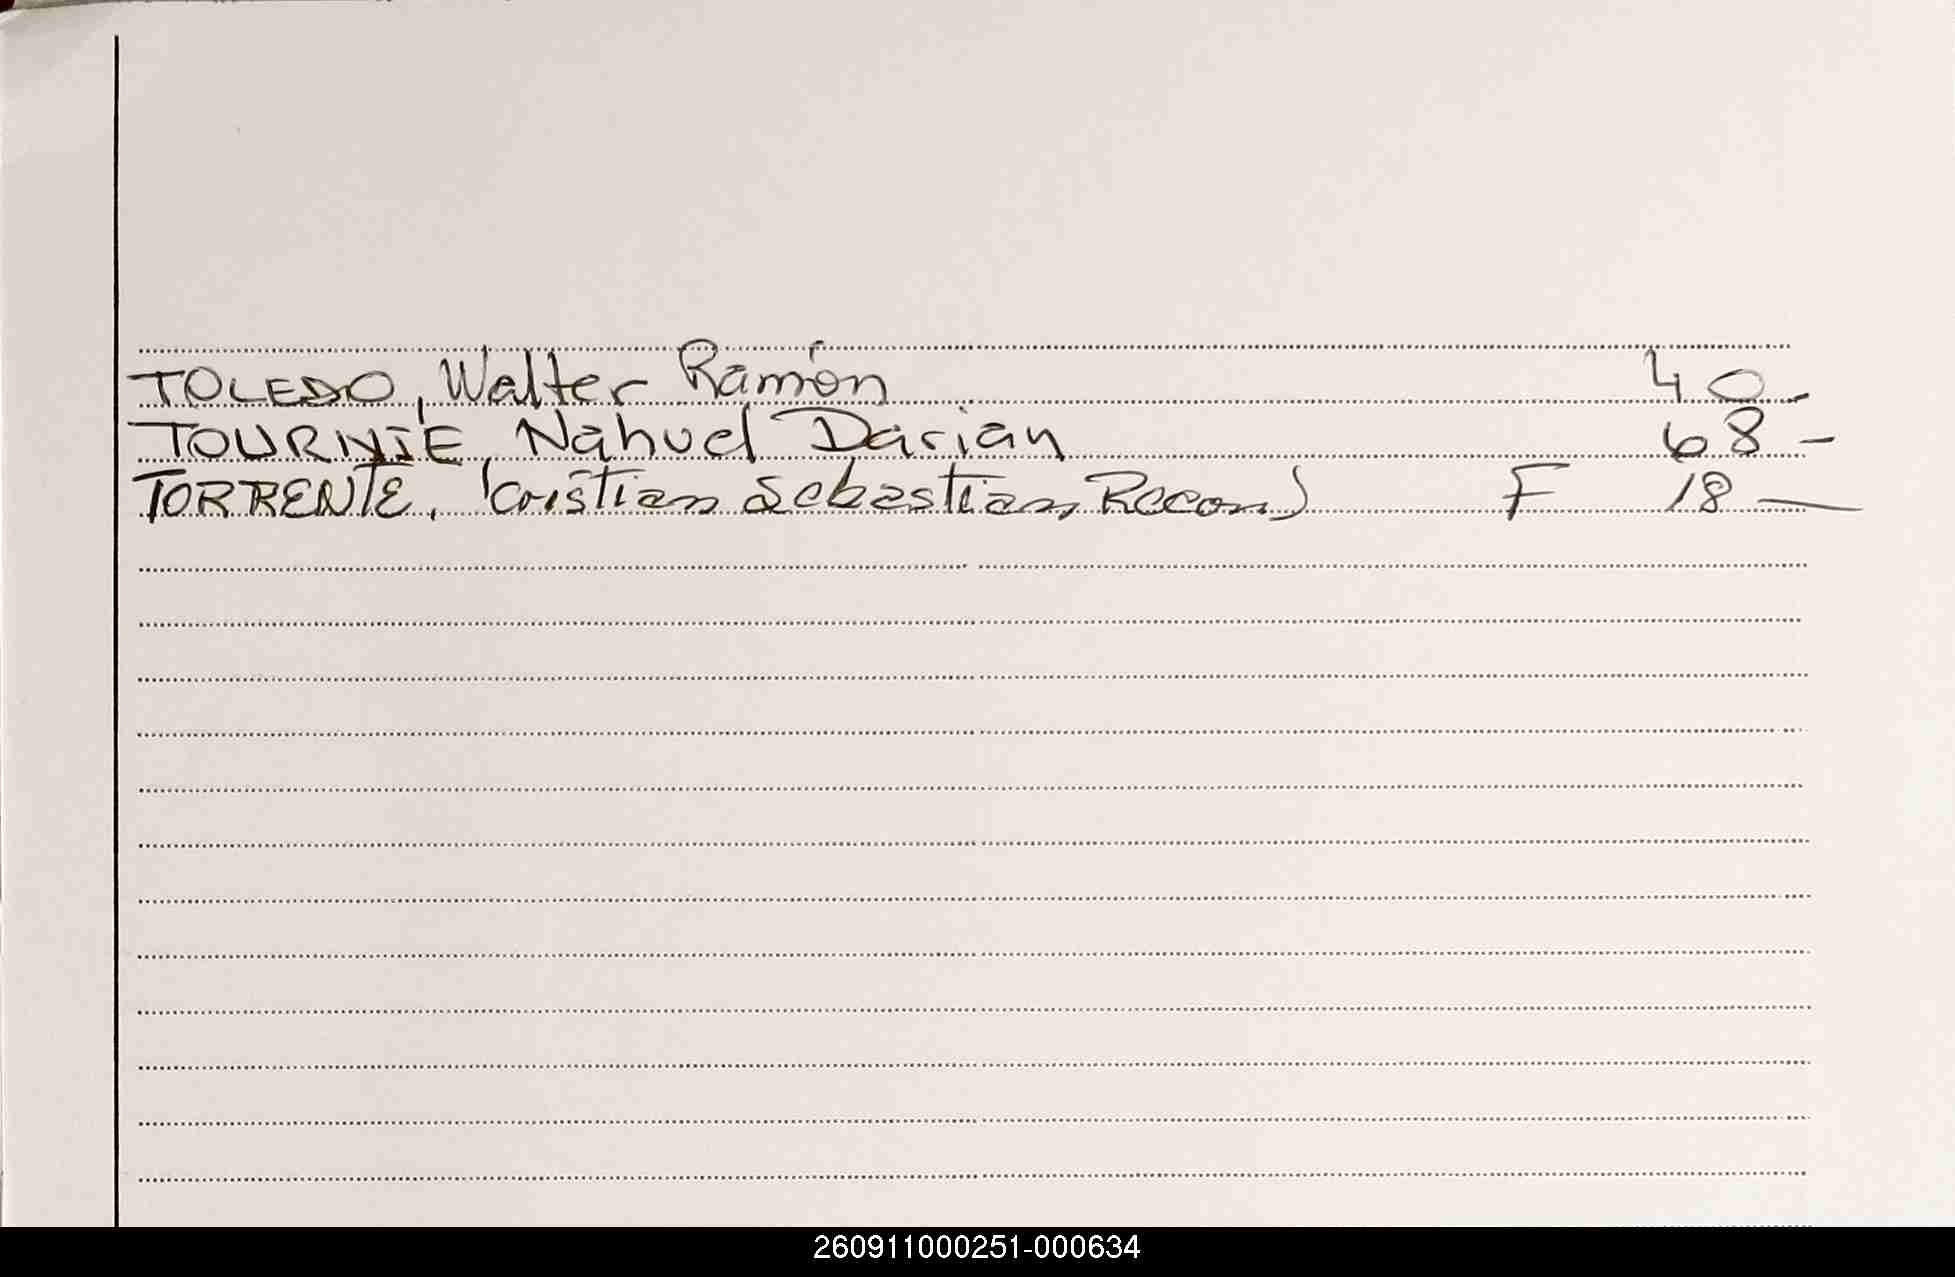 TOLEDO, Walter Ramón 40 -
TOURNIE, Nahuel Darian 68 -
TORRENTE, (Cristian Sebastian Recon) F 18 -
260911000251-000634